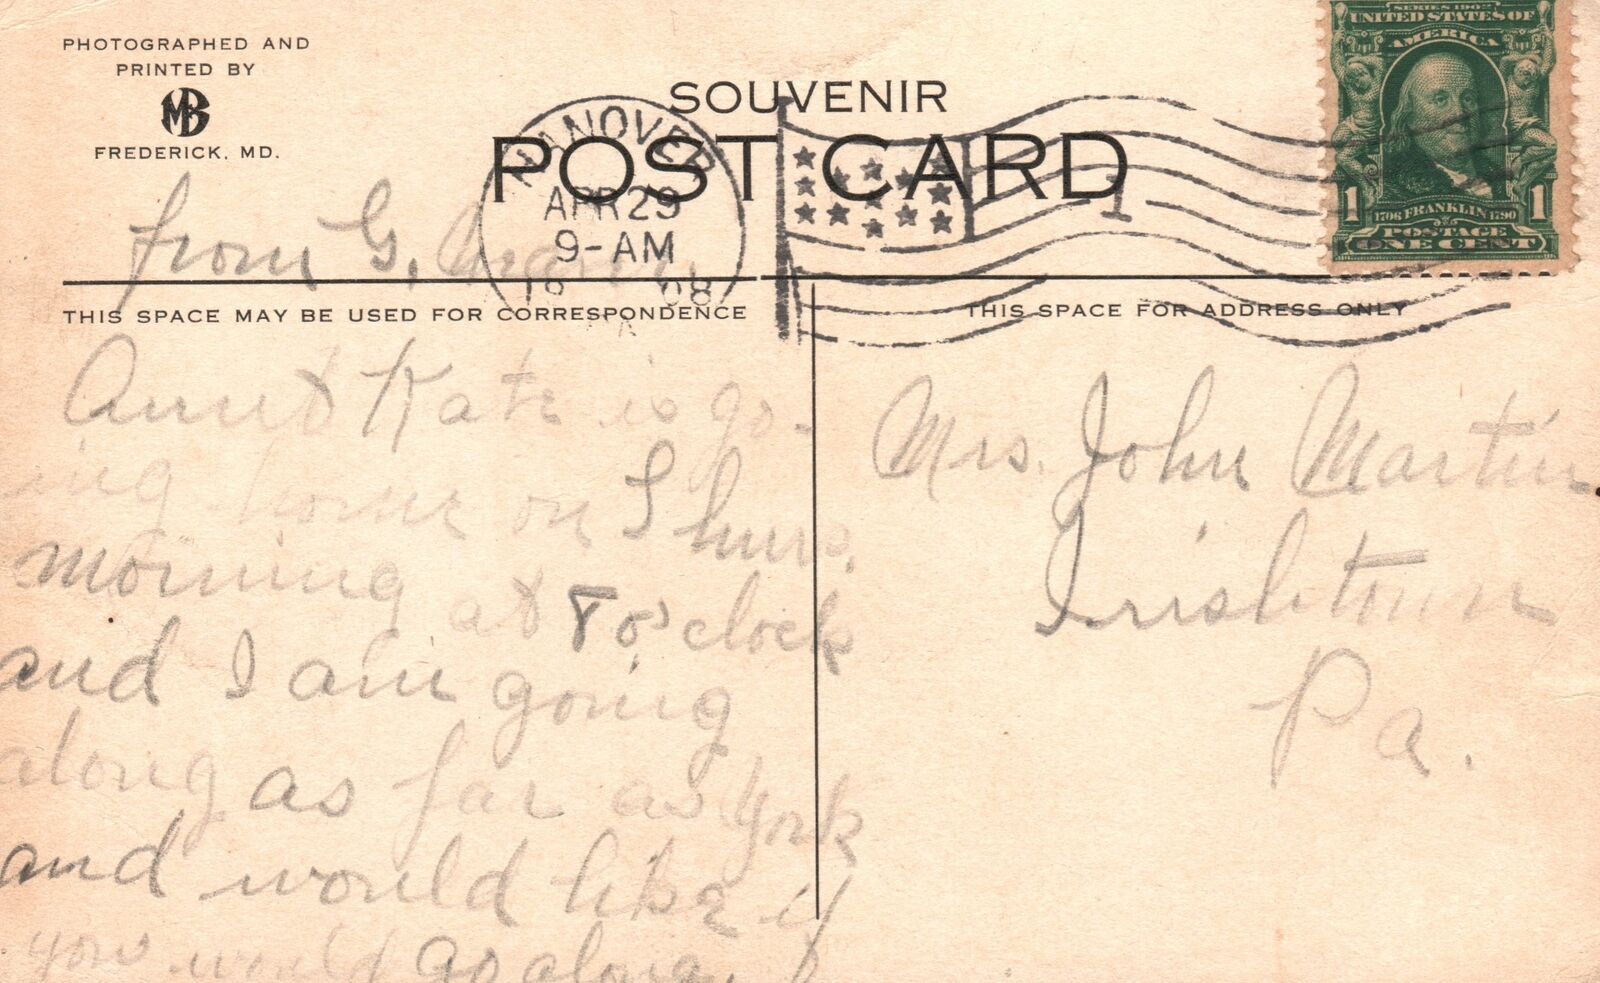 PHOTOGRAPHED AND
PRINTED BY
MB
FREDERICK, MD.
SOUVENIR
POST CARD
HANOVER
APR 29
9-AM
08
1
SERIES 1902
UNITED STATES OF
AMERICA
1 1706 FRANKLIN 1790 1
POSTAGE
ONE CENT
from G.
THIS SPACE MAY BE USED FOR CORRESPONDENCE
THIS SPACE FOR ADDRESS ONLY
Aunt Kate is go-
ing home on Thurs.
morning at 8 o'clock
and I am going
along as far as York
and would like if
you would go along.
Mrs. John Martin
Irishtown
Pa.